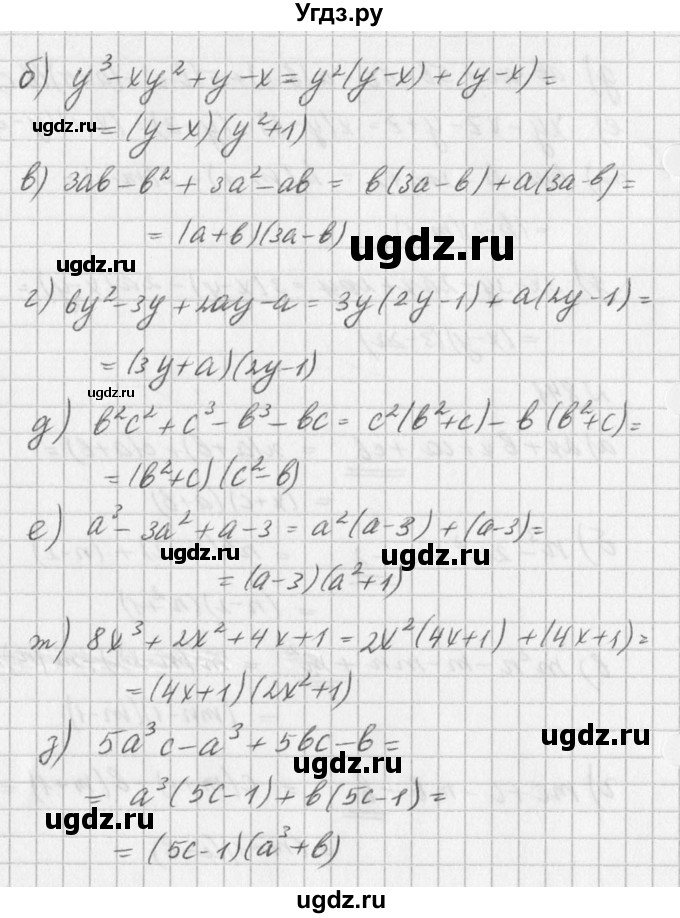 Угдз.ру
б) y³-xy²+y-x = y²(y-x)+(y-x)=
ugdz.ru
= (y-x)(y²+1)
в) 3ab-b²+3a²-ab = b(3a-b)+a(3a-b)=
= (a+b)(3a-b)
ugdz.ru
ugdz.ru
г) 6y²-3y+2ay-a = 3y(2y-1)+a(2y-1)=
= (3y+a)(2y-1)
ugdz.ru
д) b²c²+c³-b³-bc = c²(b²+c)-b(b²+c)=
= (b²+c)(c²-b)
е) a³-3a²+a-3 = a²(a-3)+(a-3)=
ugdz.ru
ugdz.ru
= (a-3)(a²+1)
ж) 8x³+2x²+4x+1 = 2x²(4x+1)+(4x+1)=
= (4x+1)(2x²+1)
ugdz.ru
з) 5a³c-a³+5bc-b=
ugdz.ru
= a³(5c-1)+b(5c-1)=
ugdz.ru
= (5c-1)(a³+b)
ugdz.ru